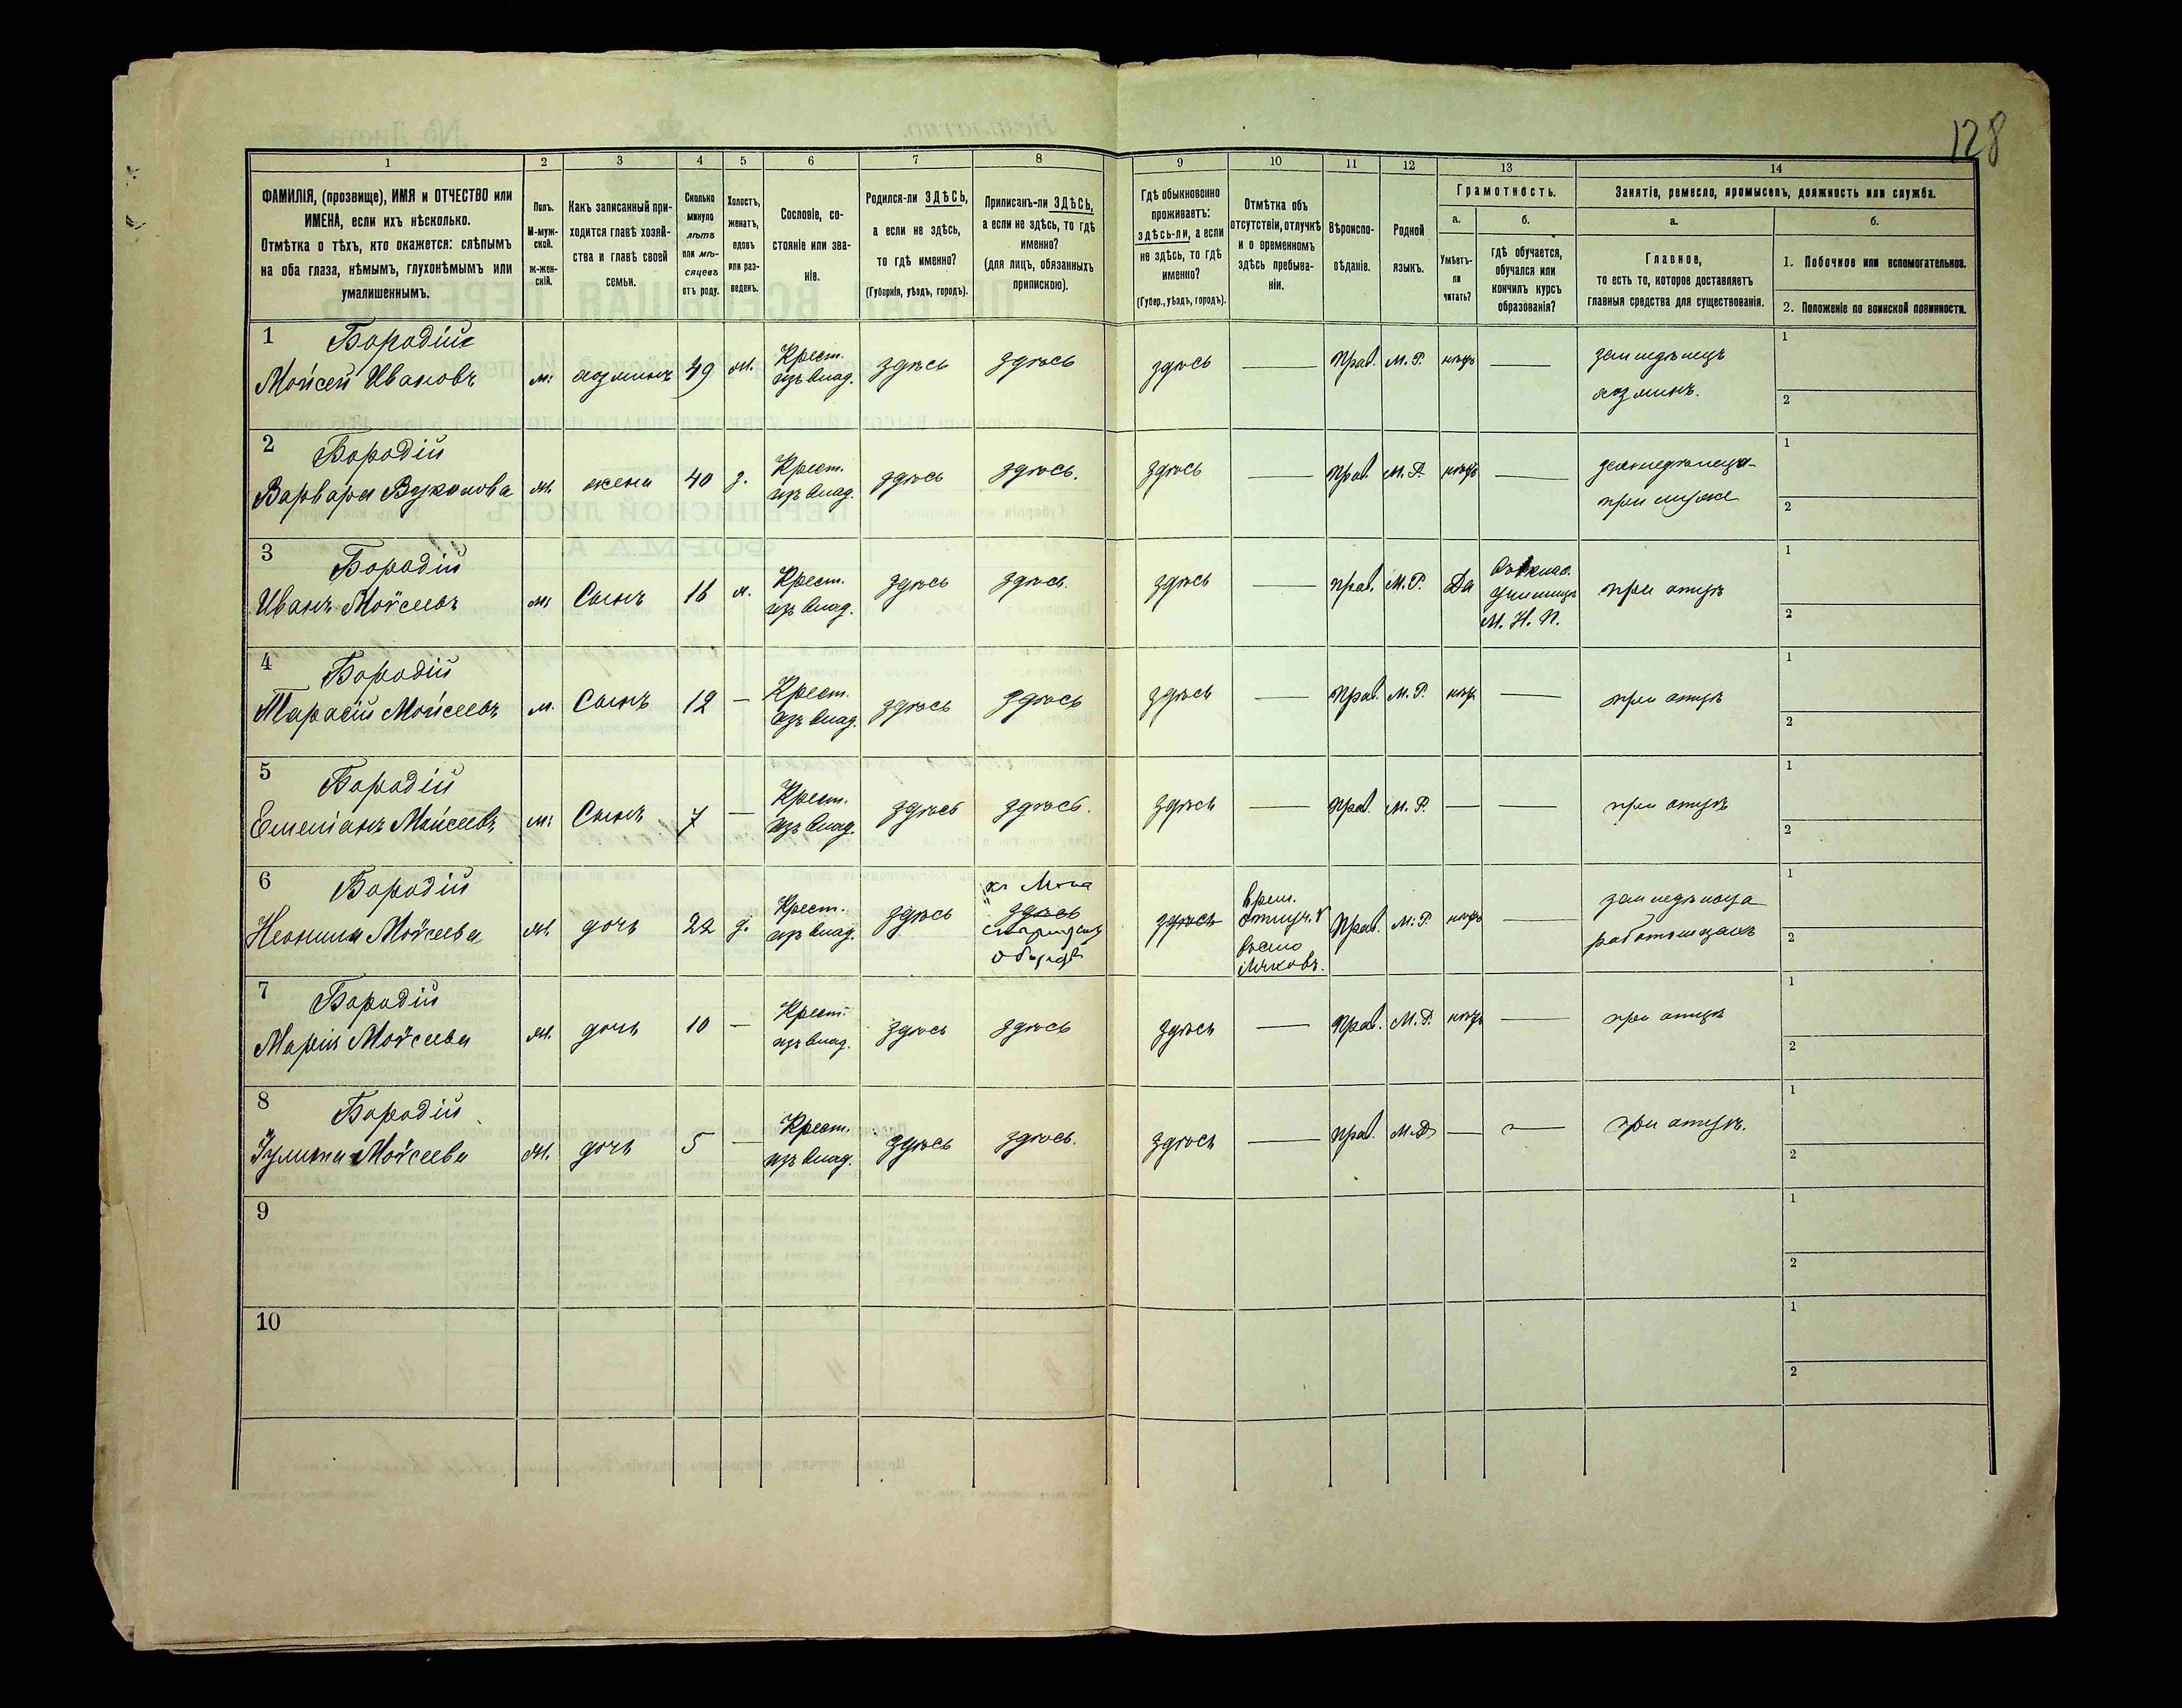 128
1 2 3 4 5 6 7 8 9 10 11 12 13 14
ФАМИЛІЯ, (прозвище), ИМЯ и ОТЧЕСТВО или
ИМЕНА, если ихъ нѣсколько.
Отмѣтка о тѣхъ, кто окажется: слѣпымъ
на оба глаза, нѣмымъ, глухонѣмымъ или
умалишеннымъ.
Полъ.
М-муж-
ской.
ж-жен-
скій.
Какъ записанный при-
ходится главѣ хозяй-
ства и главѣ своей
семьи.
Сколько
минуло
лѣтъ
или мѣ-
сяцевъ
отъ роду.
Холостъ,
женатъ,
вдовъ
или раз-
веденъ.
Сословіе, со-
стояніе или зва-
ніе.
Родился-ли ЗДѢСЬ,
а если не здѣсь,
то гдѣ именно?
(Губернія, уѣздъ, городъ).
Приписанъ-ли ЗДѢСЬ,
а если не здѣсь, то гдѣ
именно?
(для лицъ, обязанныхъ
припискою).
Гдѣ обыкновенно
проживаетъ:
здѣсь-ли, а если
не здѣсь, то гдѣ
именно?
(Губер., уѣздъ, городъ).
Отмѣтка объ
отсутствіи, отлучкѣ
и о временномъ
здѣсь пребыва-
ніи.
Вѣроиспо-
вѣданіе.
Родной
языкъ.
Грамотность.
а.
Умѣетъ-
ли
читать?
б.
гдѣ обучается,
обучался или
кончилъ курсъ
образованія?
Занятіе, ремесло, промыселъ, должность или служба.
а.
Главное,
то есть то, которое доставляетъ
главныя средства для существованія.
б.
1. Побочное или вспомогательное.
2. Положеніе по воинской повинности.
1 Бородій
Мойсей Ивановъ м. хозяинъ 49 ж. Крест. изъ влад. здѣсь здѣсь здѣсь — Прав. М. Р. нѣтъ — земледѣлецъ хозяинъ. 1 2
2 Бородій
Варвара Вуколова ж. жена 40 з. Крест. изъ влад. здѣсь здѣсь. здѣсь — Прав. М. Р. нѣтъ — земледѣлица при мужѣ 1 2
3 Бородій
Иванъ Мойсеевъ м. Сынъ 16 х. Крест. изъ влад. здѣсь здѣсь здѣсь — Прав. М. Р. Да училищѣ М. Н. П. при отцѣ 1 2
4 Бородій
Тарасій Мойсеевъ м. Сынъ 12 — Крест. изъ влад. здѣсь здѣсь здѣсь — Прав. М. Р. нѣтъ — при отцѣ 1 2
5 Бородій
Емеліанъ Мойсеевъ м. Сынъ 7 — Крест. изъ влад. здѣсь здѣсь. здѣсь — Прав. М. Р. — — при отцѣ 1 2
6 Бородій
Неонила Мойсеева ж. дочь 22 д. Крест. изъ влад. здѣсь здѣсь здѣсь врем. Прав. М. Р. нѣтъ — земледѣлица 1 2
7 Бородій
Марія Мойсеева ж. дочь 10 — Крест. изъ влад. здѣсь здѣсь здѣсь — Прав. М. Р. нѣтъ — при отцѣ 1 2
8 Бородій
Іулита Мойсеева ж. дочь 5 — Крест. изъ влад. здѣсь здѣсь. здѣсь — Прав. М. Р. — — при отцѣ. 1 2
9 1 2
10 1 2